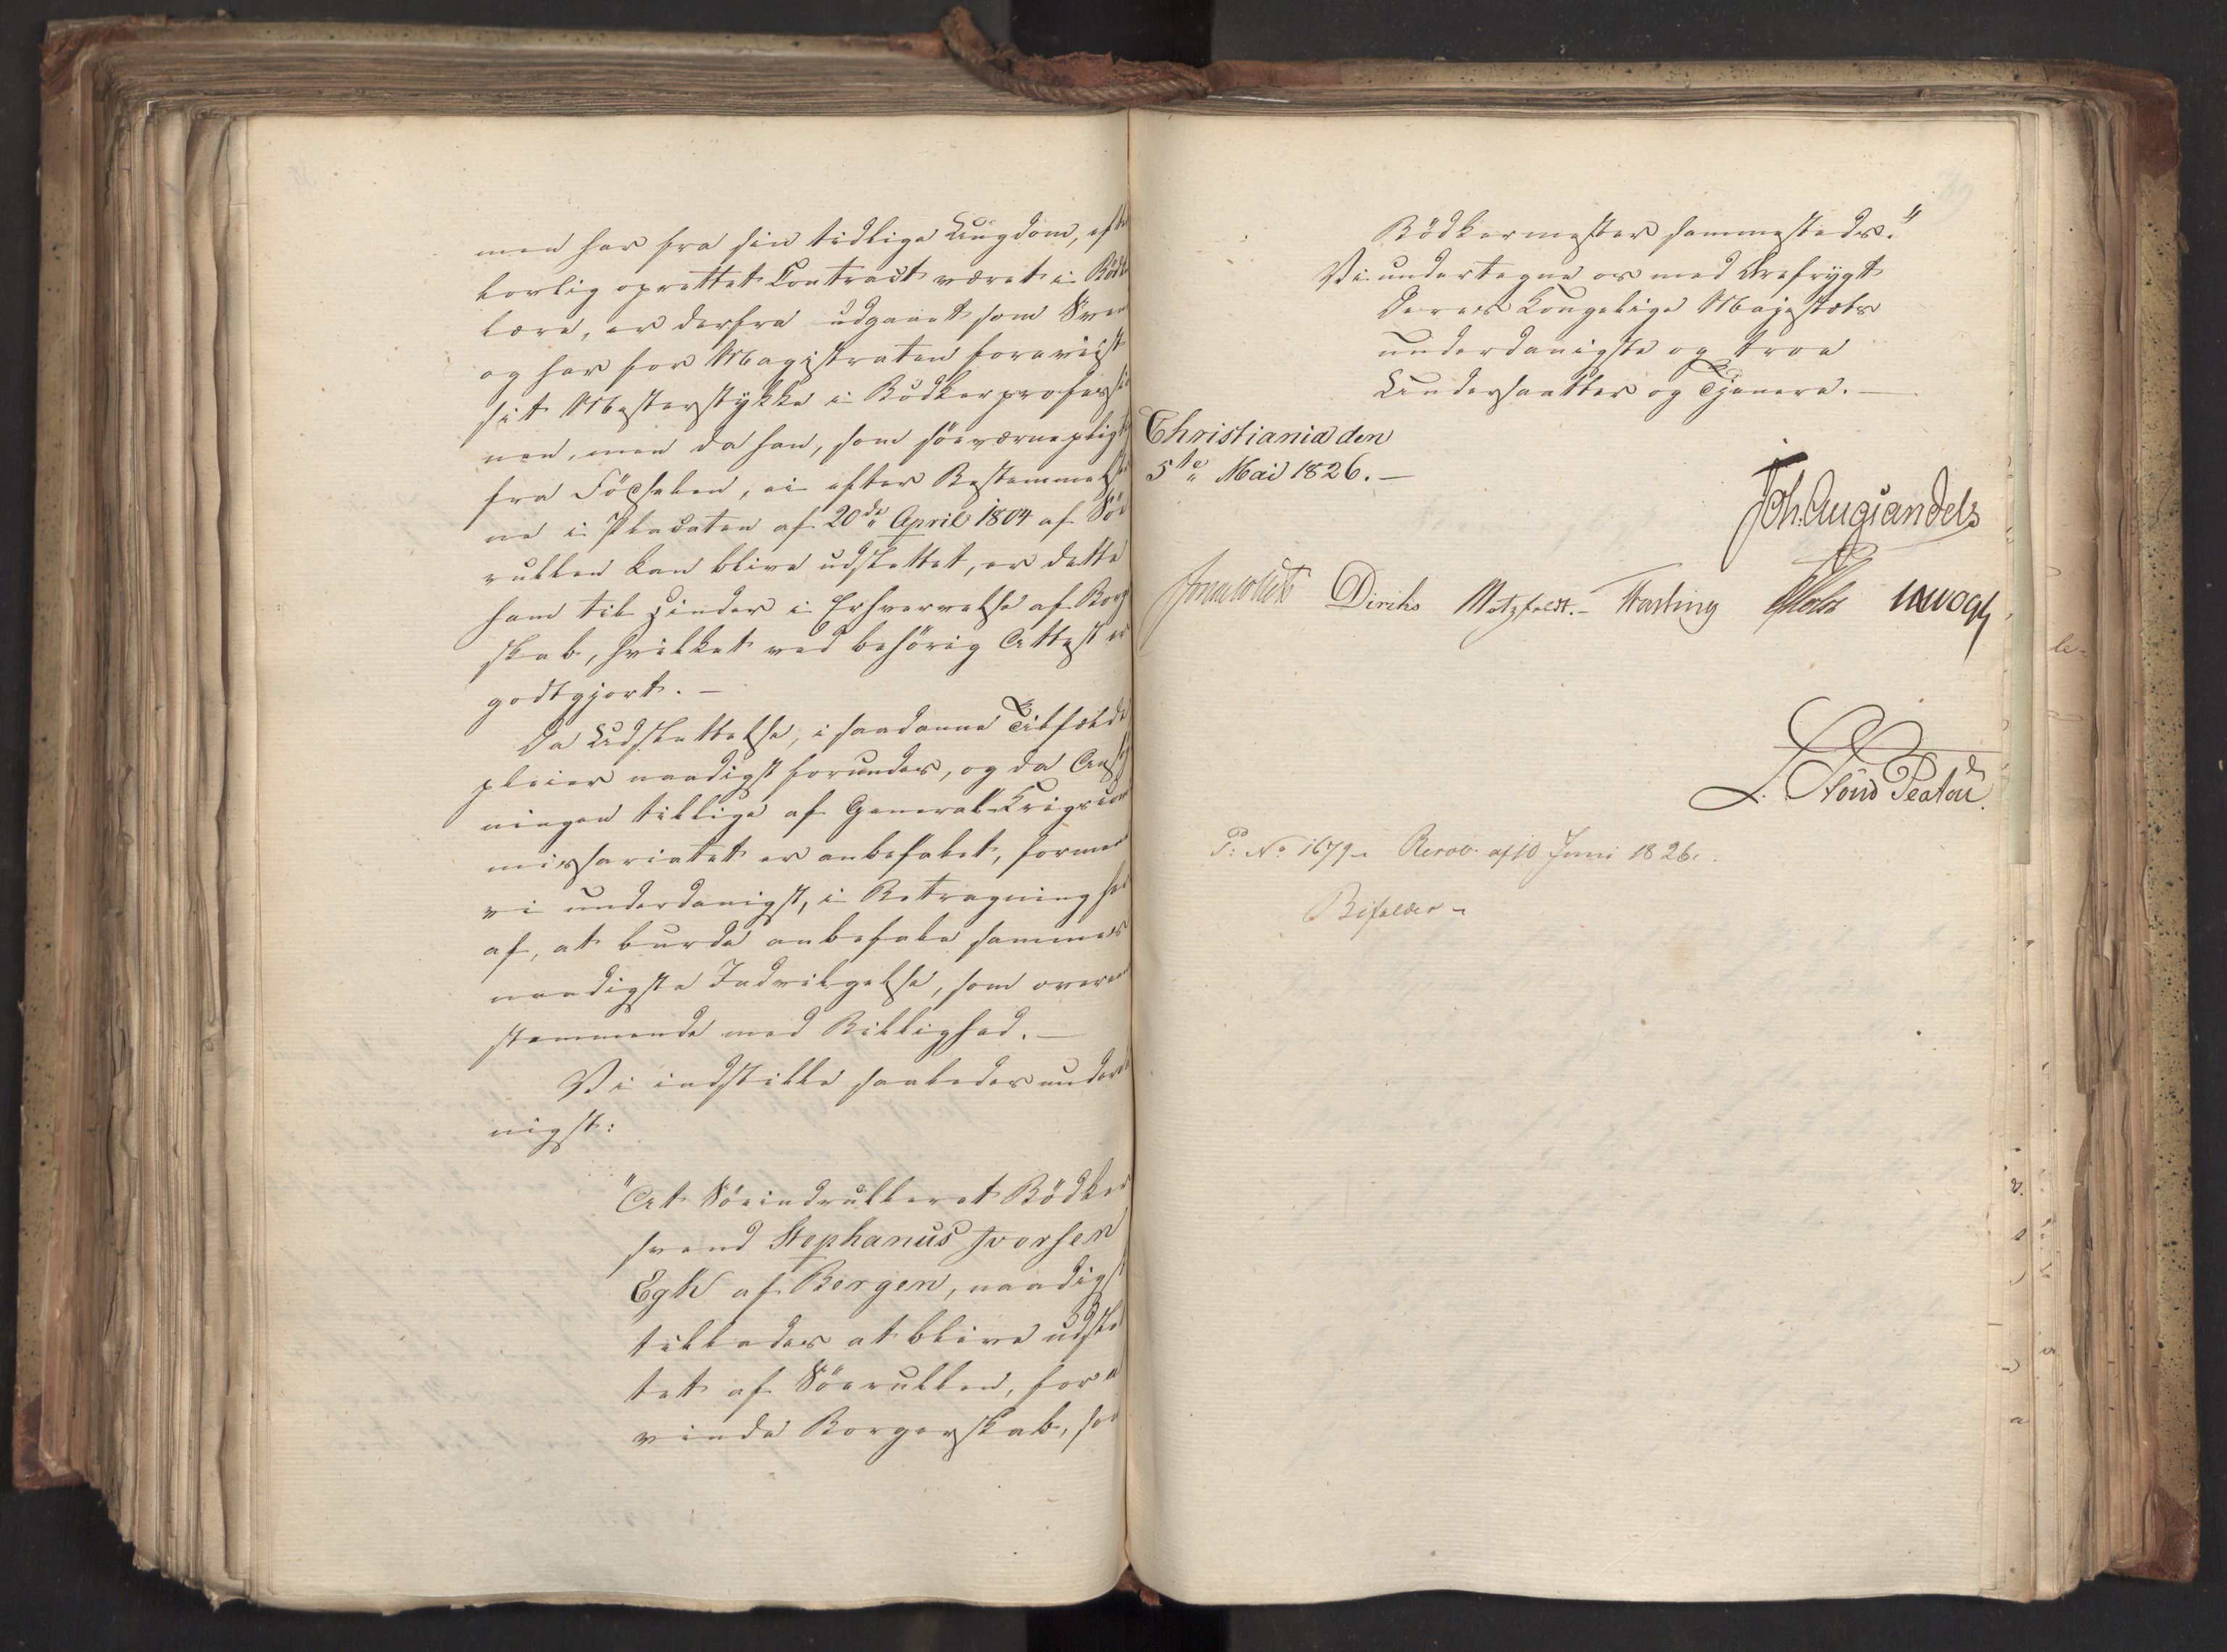 men har fra sin tidlige Ungdom, efte
lovlig oprettet Contract været i Bödk
lære, er derfra udgaaet som Sven
og har for Magistraten foreviist
sit Mesterstykke i Bödkerprofessi
nen, men da han, som söeværnepligt
fra Födselen, ei efter Bestemmelse
ne i Placaten af 20de April 1804 af Söe
rullen kan blive udslettet, er dette
ham til Hinder i Erhvervelse af Borg
skab, hvilket ved behörig Attest er
godtgjort. —
Da Udslettelse, i saadanne Tilfælde
pleier naadigst forundes, og da Ansög
ningen tillige af General-Krigscom
missariatet er anbefalet, formene
vi underdanigst, i Betragning her
af, at burde anbefale sammes
naadigste Indvilgelse, som overeens
stemmende med Billighed. —
Vi indstille saaledes underda
nigst:
"At Söeindrulleret Bödker
svend Stephanus Iversen
Egk af Bergen, naadigst
tillades at blive udslet
tet af Söerullen, for at
vinde Borgerskab, som
Bödkermester sammesteds."
Vi undertegne os med Ærefrygt
Deres Kongelige Majestæts
underdanigste og troe
Undersaatter og Tjenere. —
Christiania den
5te Mai 1826. —
Joh. Aug: Sandels
Jonas Collett Diriks Motzfeldt. Fasting Holst Vogt
L. Nord Peaton
P: No 1679 - Resol: af 10 Juni 1826.
Bifaldes -